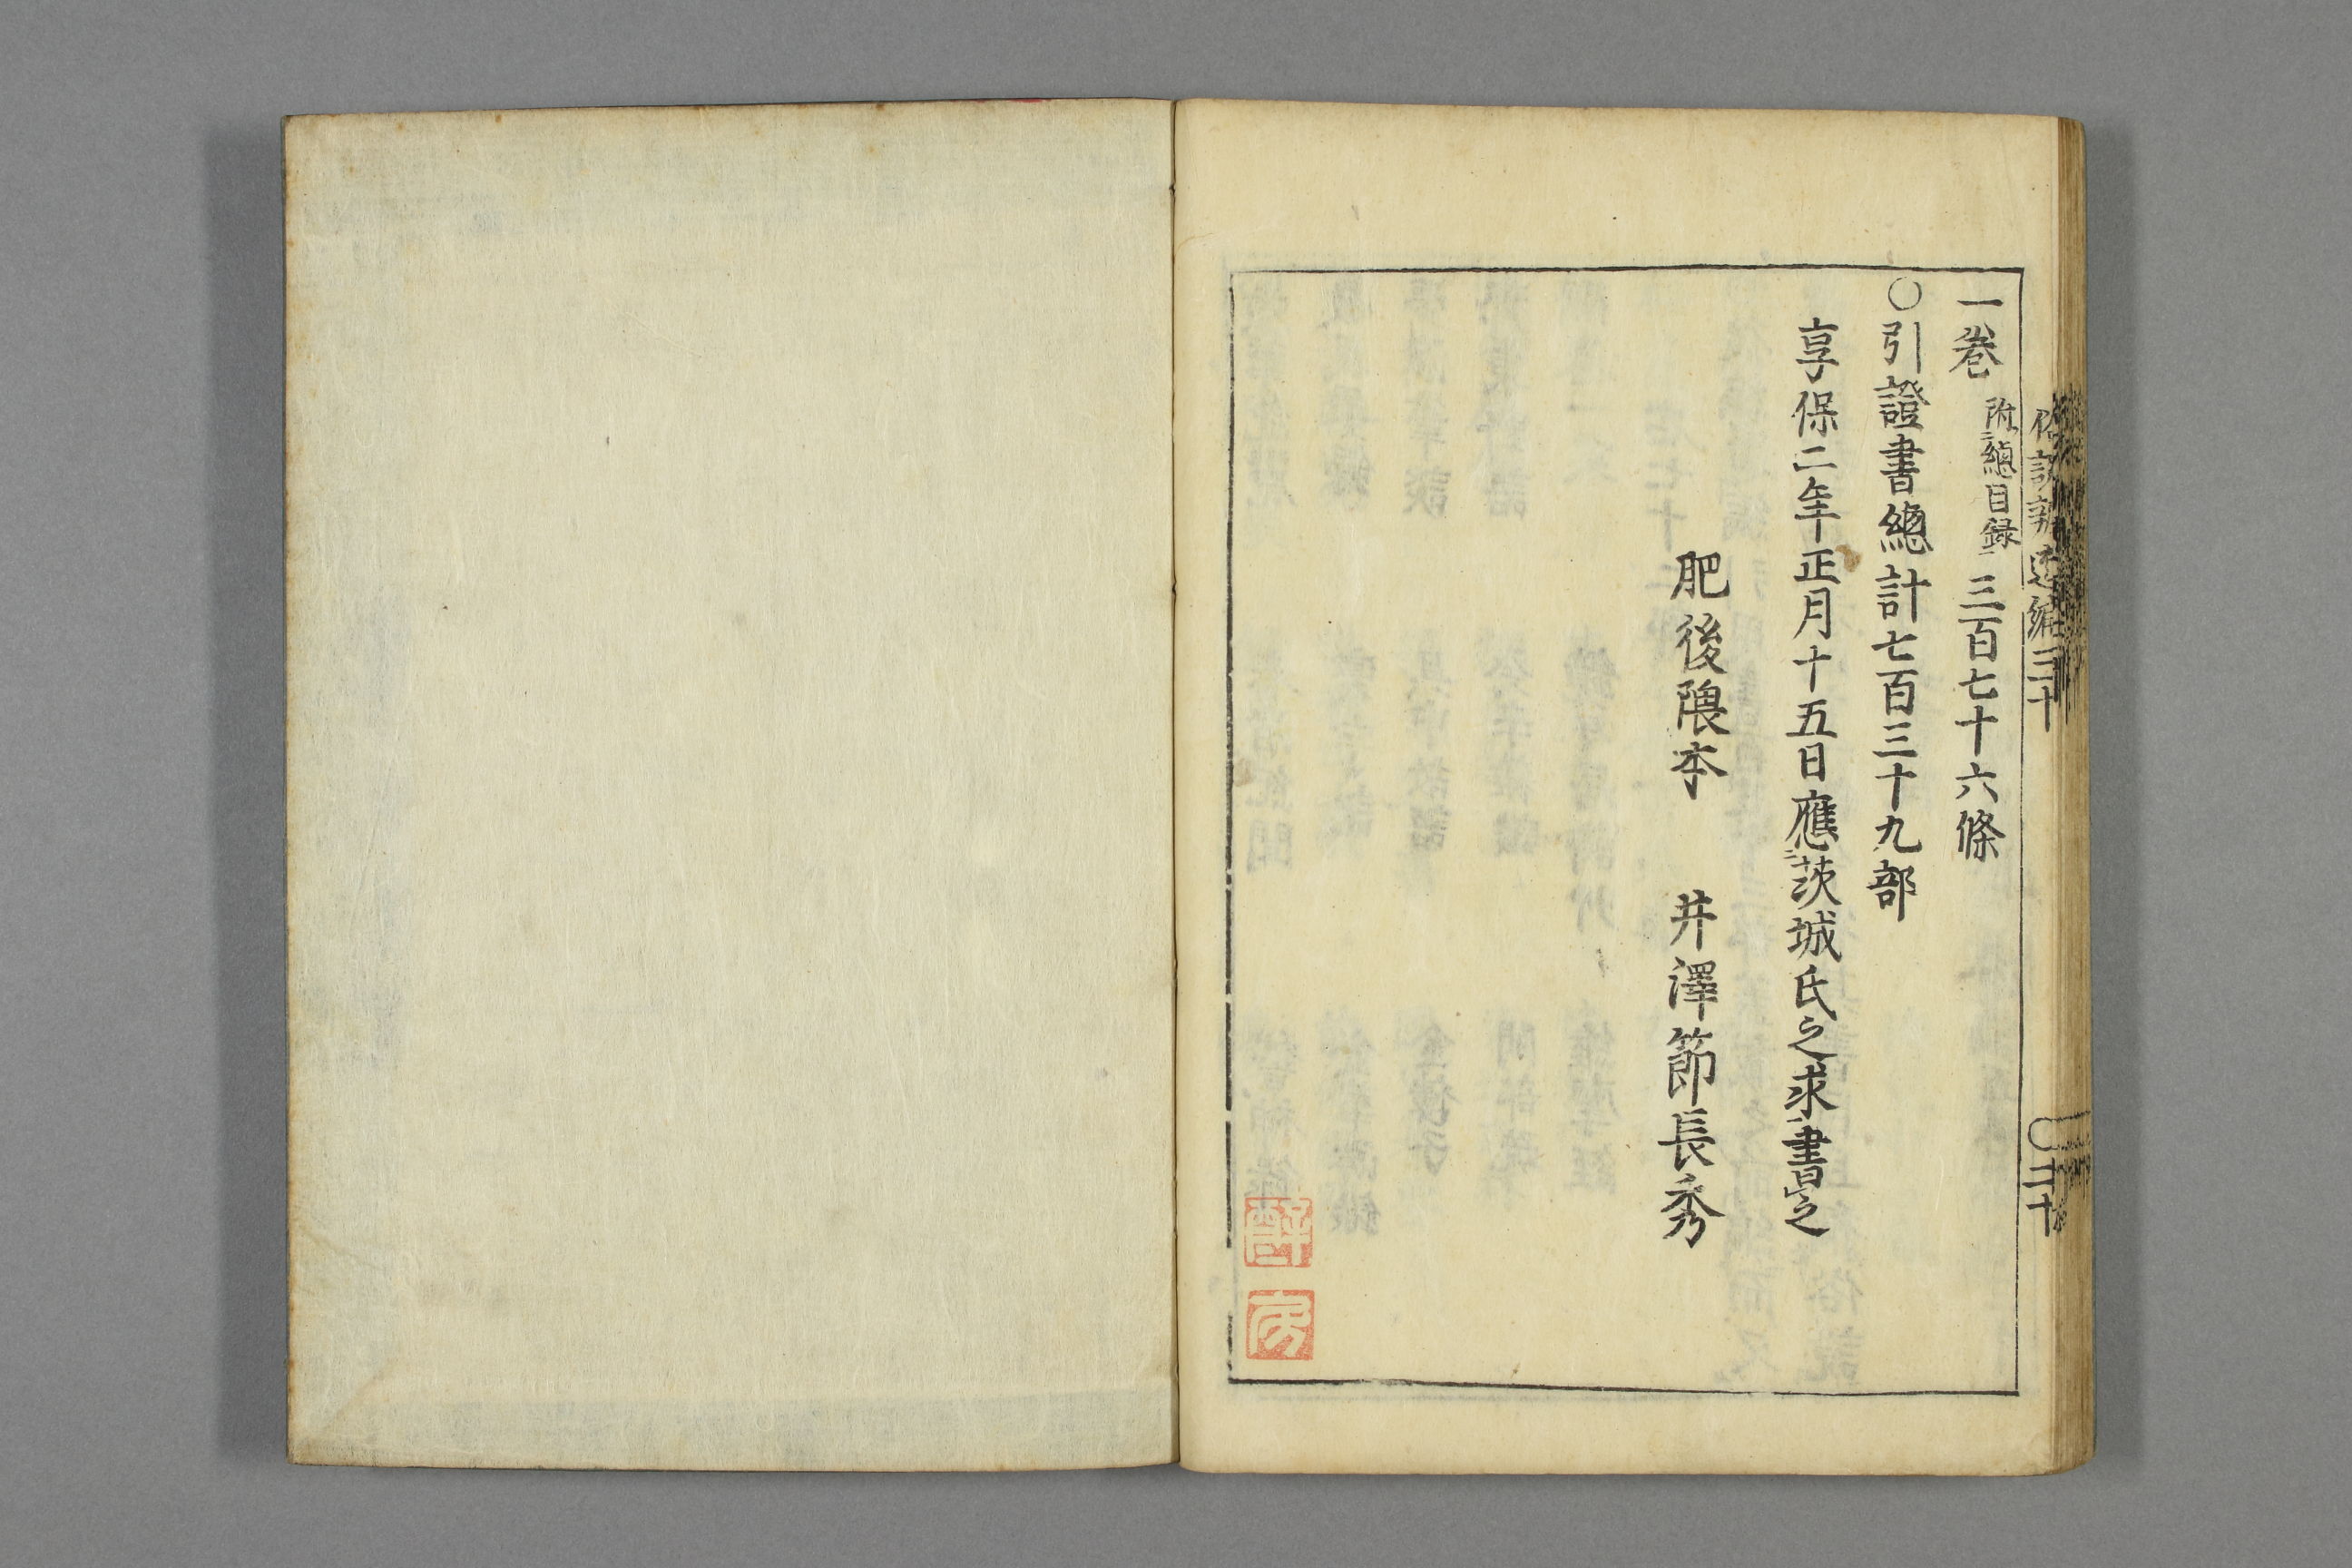 一卷 附總目録 三百七十六條
〇引證書總計七百三十九部
享保二年正月十五日應茨城氏之求書之
肥後隈本 井澤節長秀